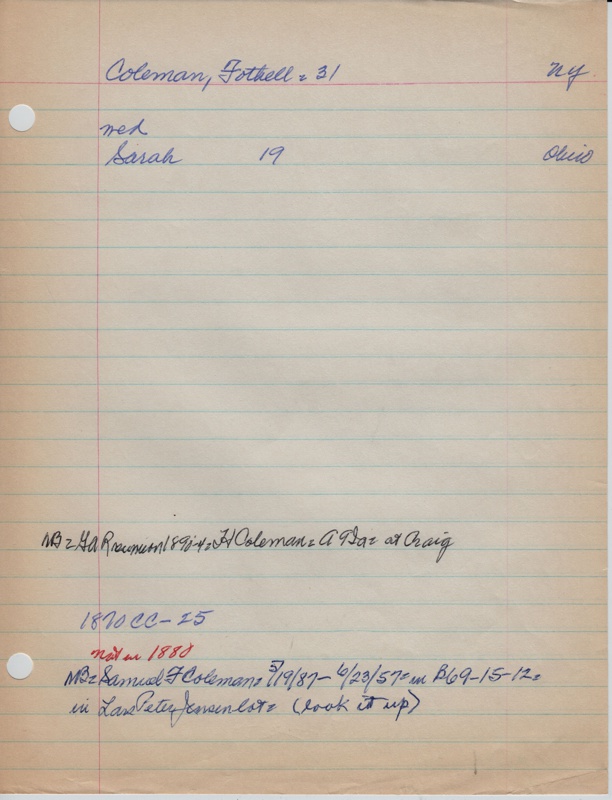 Coleman, Fothell = 31 NY.
wed
Sarah 19 Ohio
NB = GA Reunion 1890-4 = H Coleman = A 9 Ia = at Craig
1870 CC - 25
not in 1880
NB = Samuel F Coleman = 5/19/87 - 6/23/57 = in B69-15-12 =
in Lars Peter Jensen lot = (look it up)